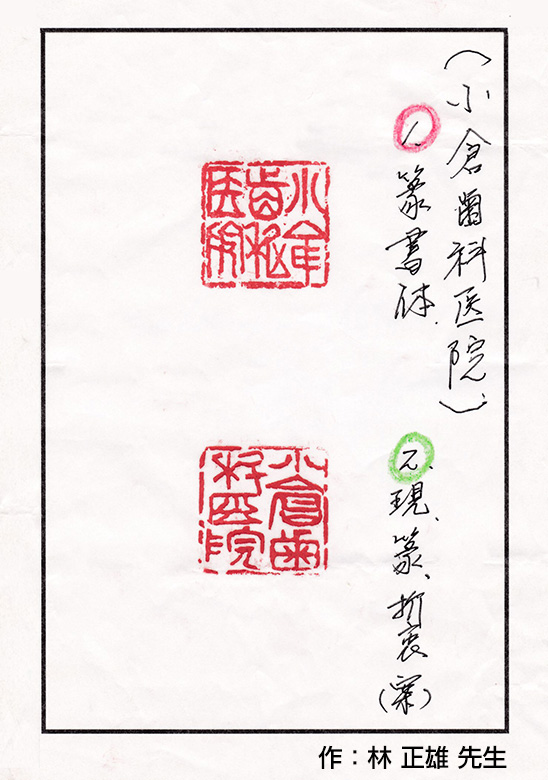 (小倉歯科医院)
1. 篆書体.
小倉
歯科
医院
2. 現、篆、折衷(案)
小倉歯
科医院
作：林 正雄 先生